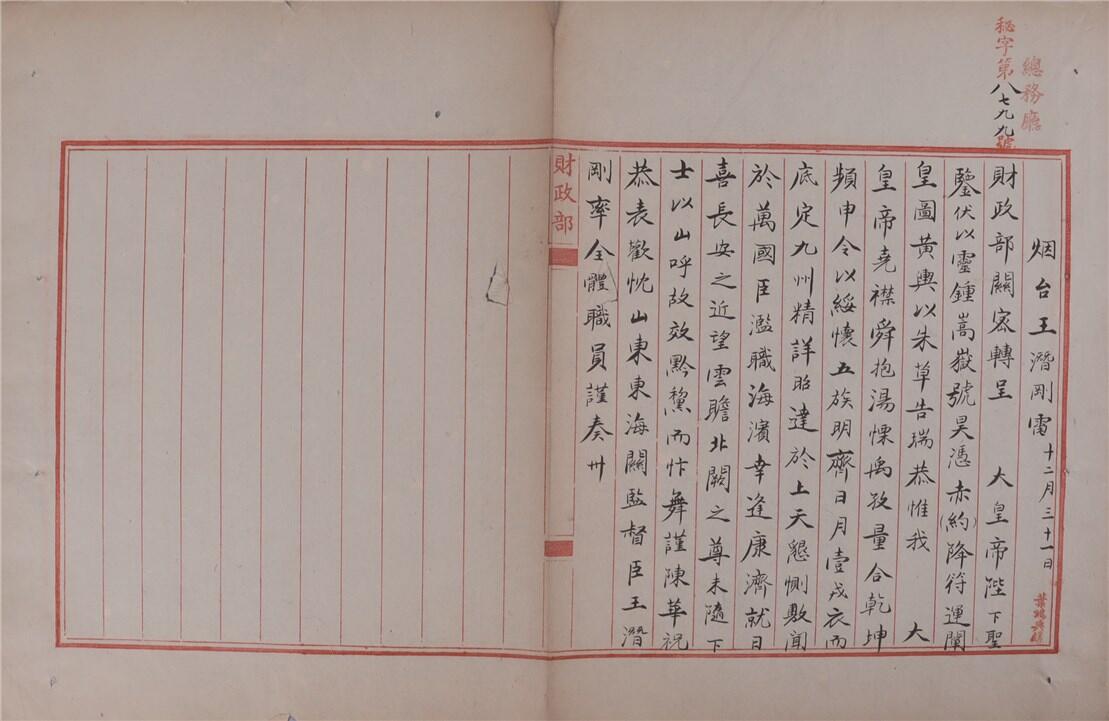 總務廳
秘字第八七九九號
烟台王潛剛電十二月三十一日
財政部關宻轉呈 大皇帝陛下聖
鑒伏以靈鍾嵩嶽號昊憑赤(約)降符運闡
皇圖黃輿以朱草告瑞恭惟我 大
皇帝堯襟舜抱湯慄禹孜量合乾坤
頻申令以綏懷五族明齊日月壹戎衣而
底定九州精詳昭達於上天懇惻敷聞
於萬國臣濫職海濱幸逢康濟就日
喜長安之近望雲瞻北闕之尊未隨下
士以山呼故效黔黧而忭舞謹陳華祝
恭表歡忱山東東海關監督臣王潛
剛率全體職員謹奏卅
財政部